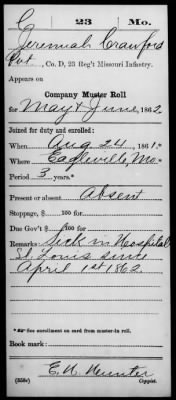 C 23 Mo.
Jeremiah Crawford
Pvt., Co. D, 23 Reg't Missouri Infantry.
Appears on
Company Muster Roll
for May & June, 1862.
Joined for duty and enrolled:
When Aug 24, 1861.
Where Eagleville, Mo.
Period 3 years.*
Present or absent Absent
Stoppage, $ 100 for
Due Gov't $ 100 for
Remarks: Sick in Hospital
St. Louis since
April 1st 1862.
*See enrollment on card from muster-in roll.
Book mark:
E. H.
(358c) Copyist.